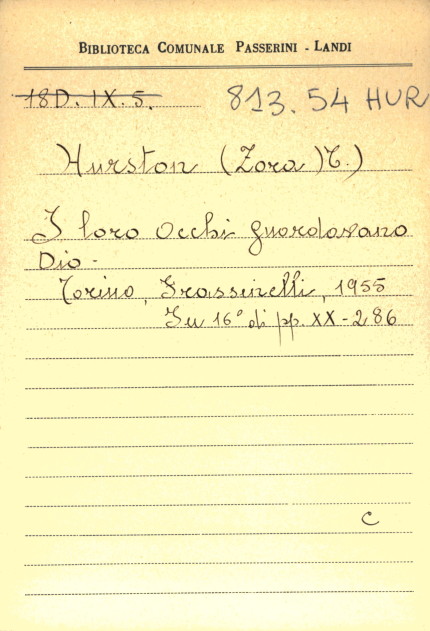 BIBLIOTECA COMUNALE PASSERINI - LANDI
18D. IX. 5. 813. 54 HUR
Hurston (Zora) T.)
I loro Occhi guardavano
Dio -
Torino, Frassinelli, 1955
In 16° di pp. XX - 286
C